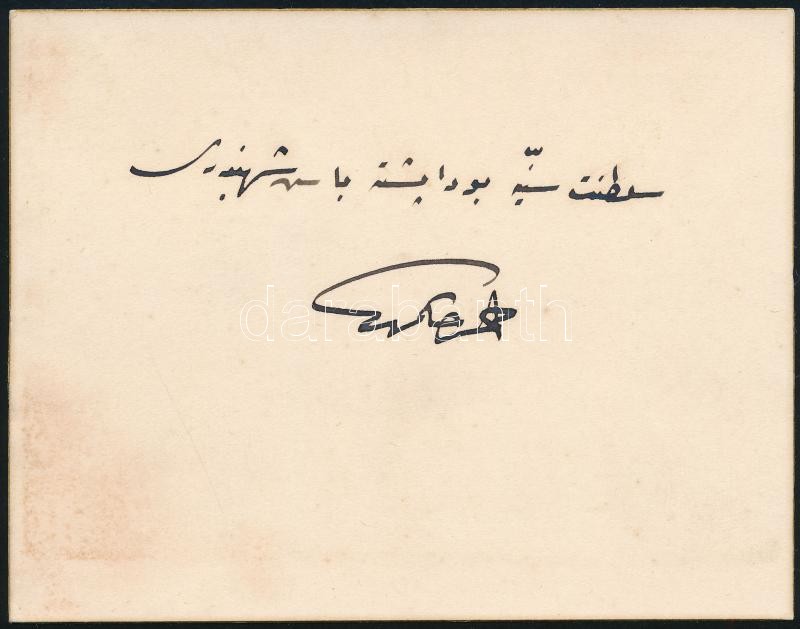 سلطنت سنیّه بوداپشته باش شهبندری
darabanth